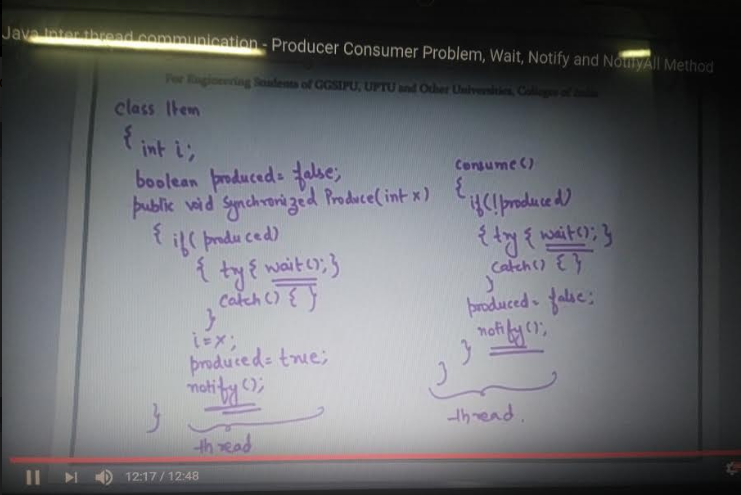 Java Inter thread communication - Producer Consumer Problem, Wait, Notify and NotifyAll Method
For Engineering Students of GGSIPU, UPTU and Other Universities, Colleges of India
class Item
{ int i;
boolean produced = false;
public void Synchronized Produce(int x)
{ if( produced)
{ try { wait(); }
Catch() { }
}
i=x;
produced= true;
notify();
}
thread
Consume()
{
if(!produced)
{ try { wait(); }
Catch() { }
}
produced= false;
notify();
}
}
thread.
12:17 / 12:48